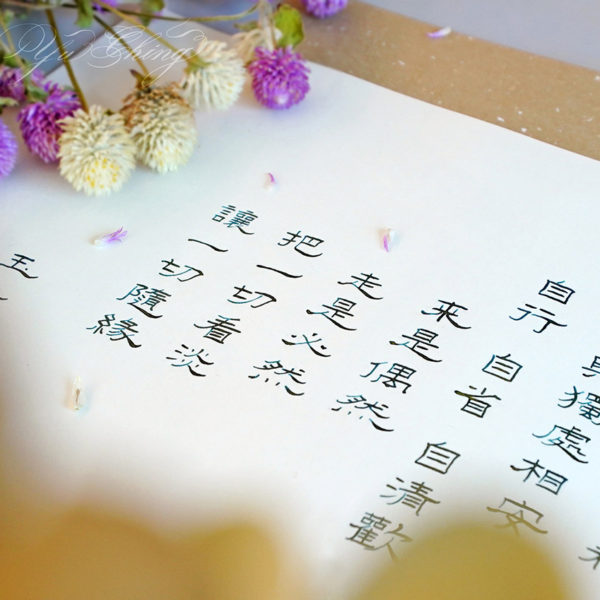 Yi Ching
與獨處相安
自行 自省 自清歡
來是偶然
走是必然
把一切看淡
讓一切隨緣
玉